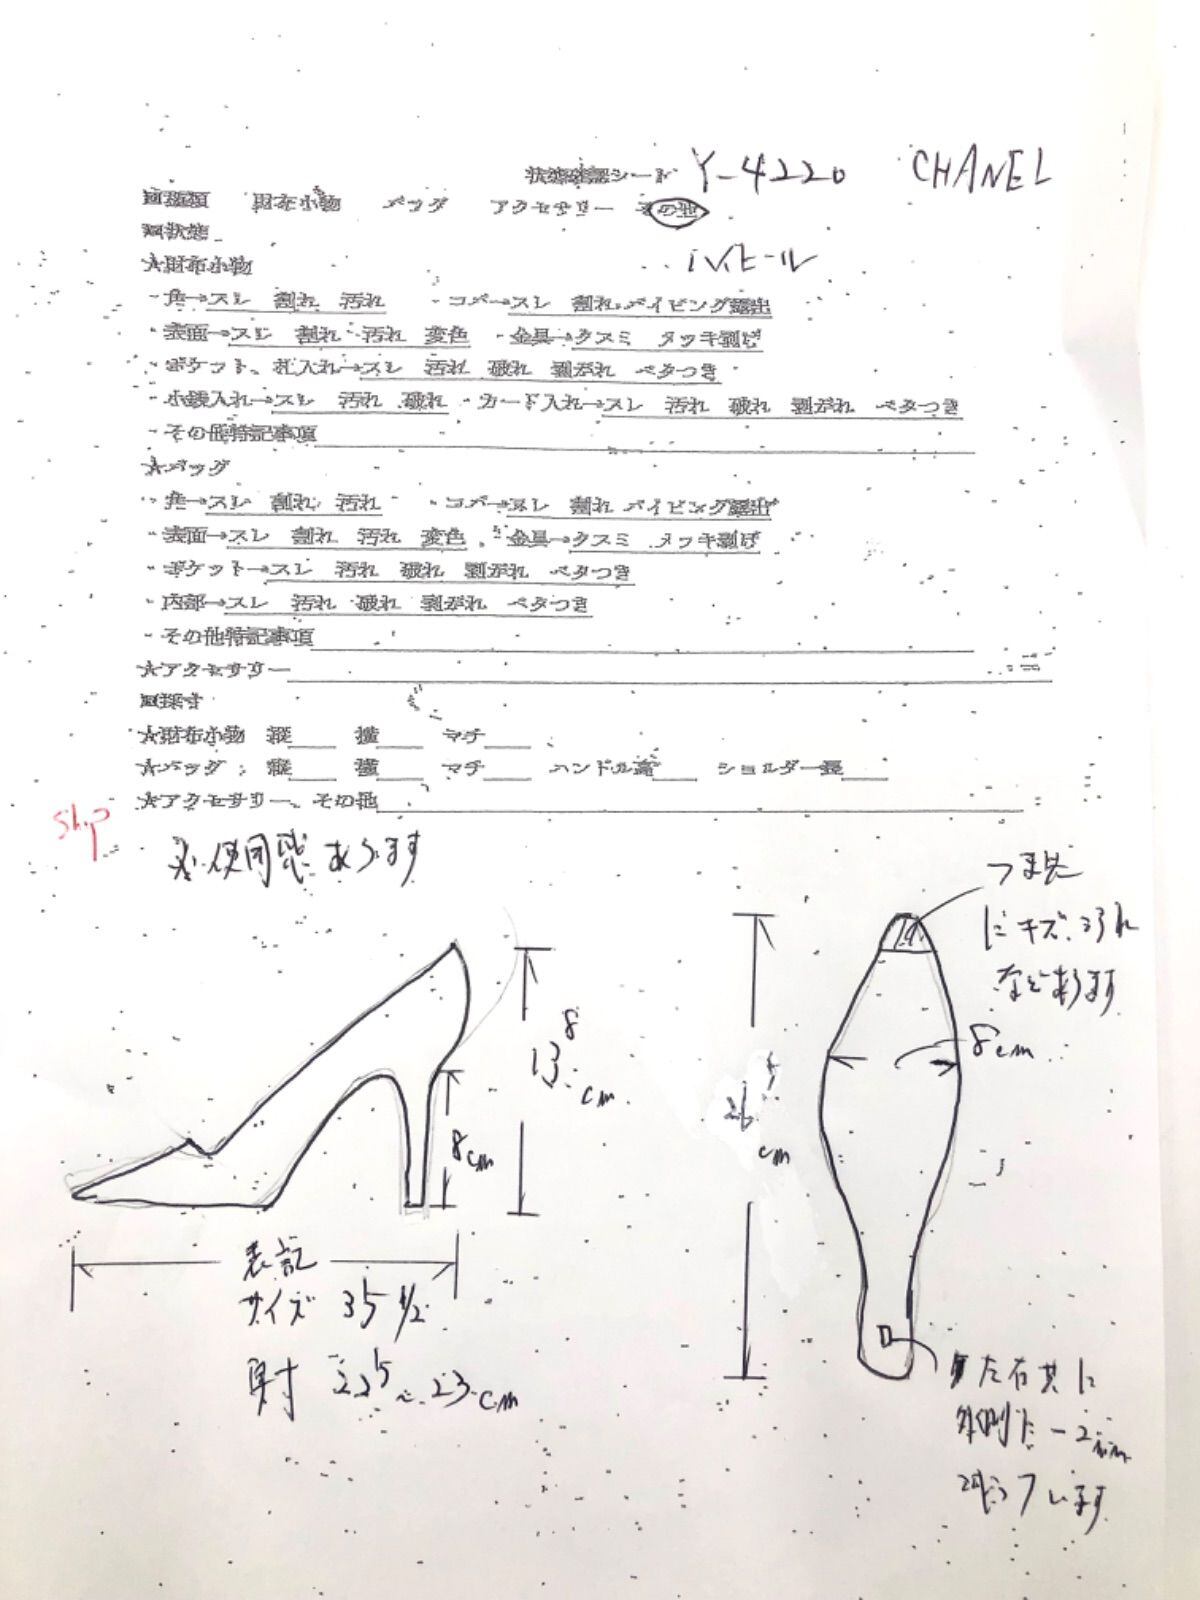 状態確認シート Y-4220 CHANEL
□種類 財布小物 バッグ アクセサリー その他
□状態
★財布小物 ハイヒール
・角→スレ 割れ 汚れ ・コバ→スレ 割れ パイピング露出
・表面→スレ 割れ 汚れ 変色 ・金具→クスミ メッキ剥げ
・ポケット、札入れ→スレ 汚れ 破れ 剥がれ ベタつき
・小銭入れ→スレ 汚れ 破れ ・カード入れ→スレ 汚れ 破れ 剥がれ ベタつき
・その他特記事項
★バッグ
・角→スレ 割れ 汚れ ・コバ→スレ 割れ パイピング露出
・表面→スレ 割れ 汚れ 変色 ・金具→クスミ メッキ剥げ
・ポケット→スレ 汚れ 破れ 剥がれ ベタつき
・内部→スレ 汚れ 破れ 剥がれ ベタつき
・その他特記事項
★アクセサリー
□採寸
★財布小物 縦 横 マチ
★バッグ 縦 横 マチ ハンドル高 ショルダー長
★アクセサリー、その他
Shop
使用感あります
つま先
にキズ、スレ
などあります
8cm
13.8
cm
8cm
26.5
cm
表記
サイズ 35 1/2
実寸 22.5~23cm
左右共に
外側に 2mm